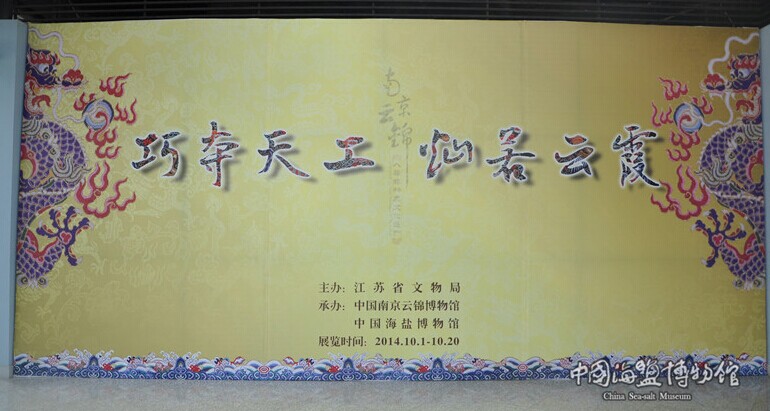 南京
云錦
巧夺天工 灿若云霞
主办：江苏省文物局
承办：中国南京云锦博物馆
中国海盐博物馆
展览时间：2014.10.1-10.20
中国海盐博物馆
China Sea-salt Museum